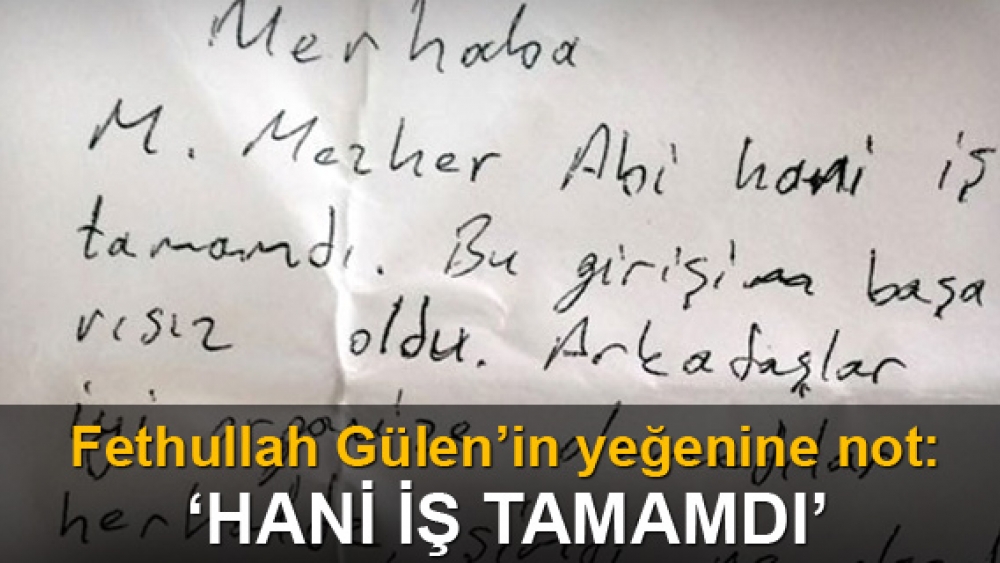 Merhaba
M. Mezher Abi hani iş
tamamdı. Bu girişim başa
rısız oldu. Arkadaşlar
iyi organize
Fethullah Gülen'in yeğenine not:
'HANİ İŞ TAMAMDI'